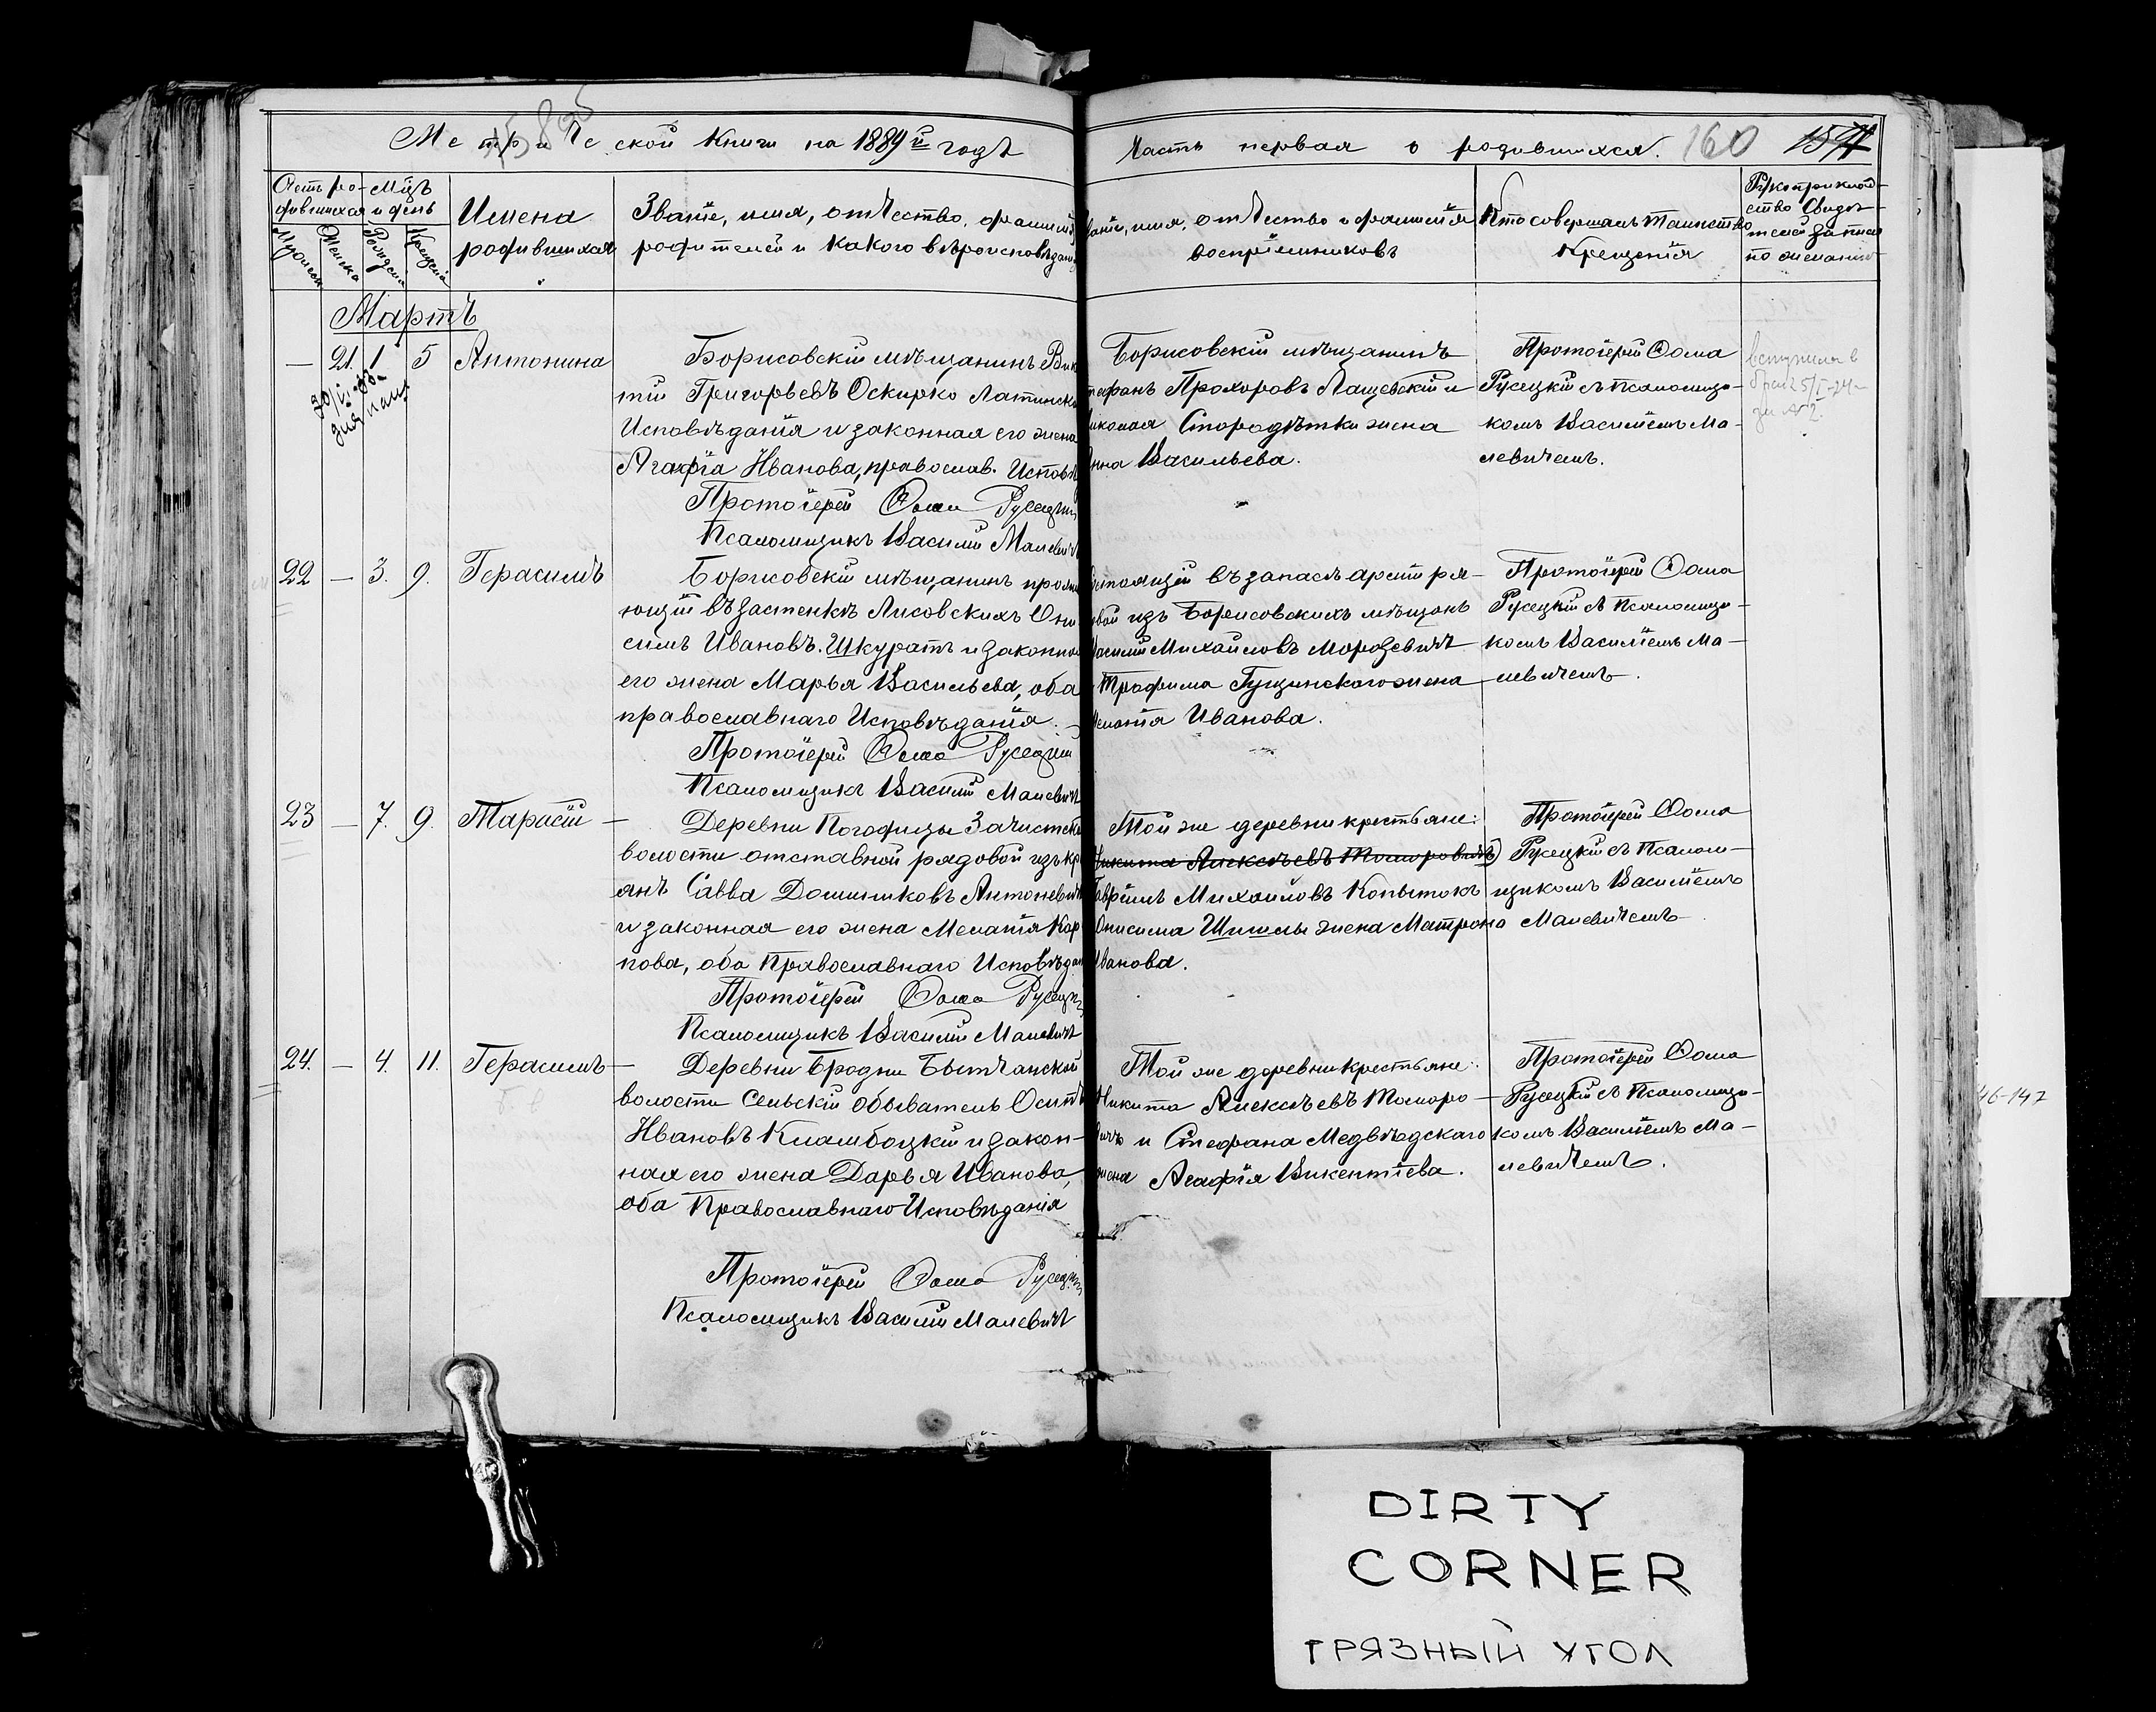 Метрической книги на 1889й годъ
Часть первая о родившихся. 160
Имена родившихся
Званіе, имя, отчество, фамилія
родителей и какого вѣроисповѣданія
имя, отчество и фамилія
воспріемниковъ
Кто совершалъ таинство
Крещенія
Рукоприклад-
ство свидѣ-
телей записи
по желанію
Мартъ
— 21. 1 5 Антонина
Борисовскій мѣщанинъ Вик
тій Григорьевъ Оскирко Латинска
Исповѣданія и законная его жена
Агафія Иванова, православ. Исповѣ
Протоіерей Ѳома Русецкій
Псаломщикъ Василій Малевичъ
Борисовскій мѣщанинъ
тефанъ Прохоровъ Лащевскій и
иколая Стородѣтки жена
нна Васильева.
Протоіерей Ѳома
Русецкій съ псаломщи-
комъ Василіемъ Ма-
левичемъ.
22 — 3. 9. Герасимъ
Борисовскій мѣщанинъ прожи
ющій въ застенкѣ Лисовскихъ Они
симъ Ивановъ Шкуратъ и законная
его жена Марья Васильева, оба
православнаго Исповѣданія.
Протоіерей Ѳома Русецкій
Псаломщикъ Василій Малевичъ
стоящій въ запасѣ арміи ря-
овой изъ Борисовскихъ мѣщанъ
Василій Михайловъ Морозевичъ
Трофима Гущинскаго жена
еланія Иванова.
Протоіерей Ѳома
Русецкій съ псаломщи-
комъ Василіемъ Ма-
левичемъ.
23 — 7. 9. Тарасій —
Деревни Погодицы Зачистск
волости отставной рядовой изъ кр
янъ Савва Доминиковъ Антоневичъ
и законная его жена Меланія Кар
пова, оба Православнаго Исповѣдан
Протоіерей Ѳома Русецкій
Псаломщикъ Василій Малевичъ
Той же деревни крестьяне:
Никита Алексѣевъ Томоровичъ
Гавріилъ Михайловъ Копытокъ
Онисима Шишлы жена Матрона
Иванова.
Протоіерей Ѳома
Русецкій съ Псалом-
щикомъ Василіемъ
Малевичемъ
24. — 4. 11. Герасимъ —
Деревни Бродни Бытчанской
волости сельскій обыватель Осипъ
Ивановъ Кламбоцкій и закон-
ная его жена Дарья Иванова,
оба Православнаго Исповѣданія
Протоіерей Ѳома Русецкій
Псаломщикъ Василій Малевичъ
Той же деревни крестьяне:
Никита Алексѣевъ Томоро-
вичъ и Стефана Медвѣдскаго
жена Агафія Викентіева.
Протоіерей Ѳома
Русецкій съ Псаломщи-
комъ Василіемъ Ма-
левичемъ.
46-147
DIRTY
CORNER
ГРЯЗНЫЙ УГОЛ